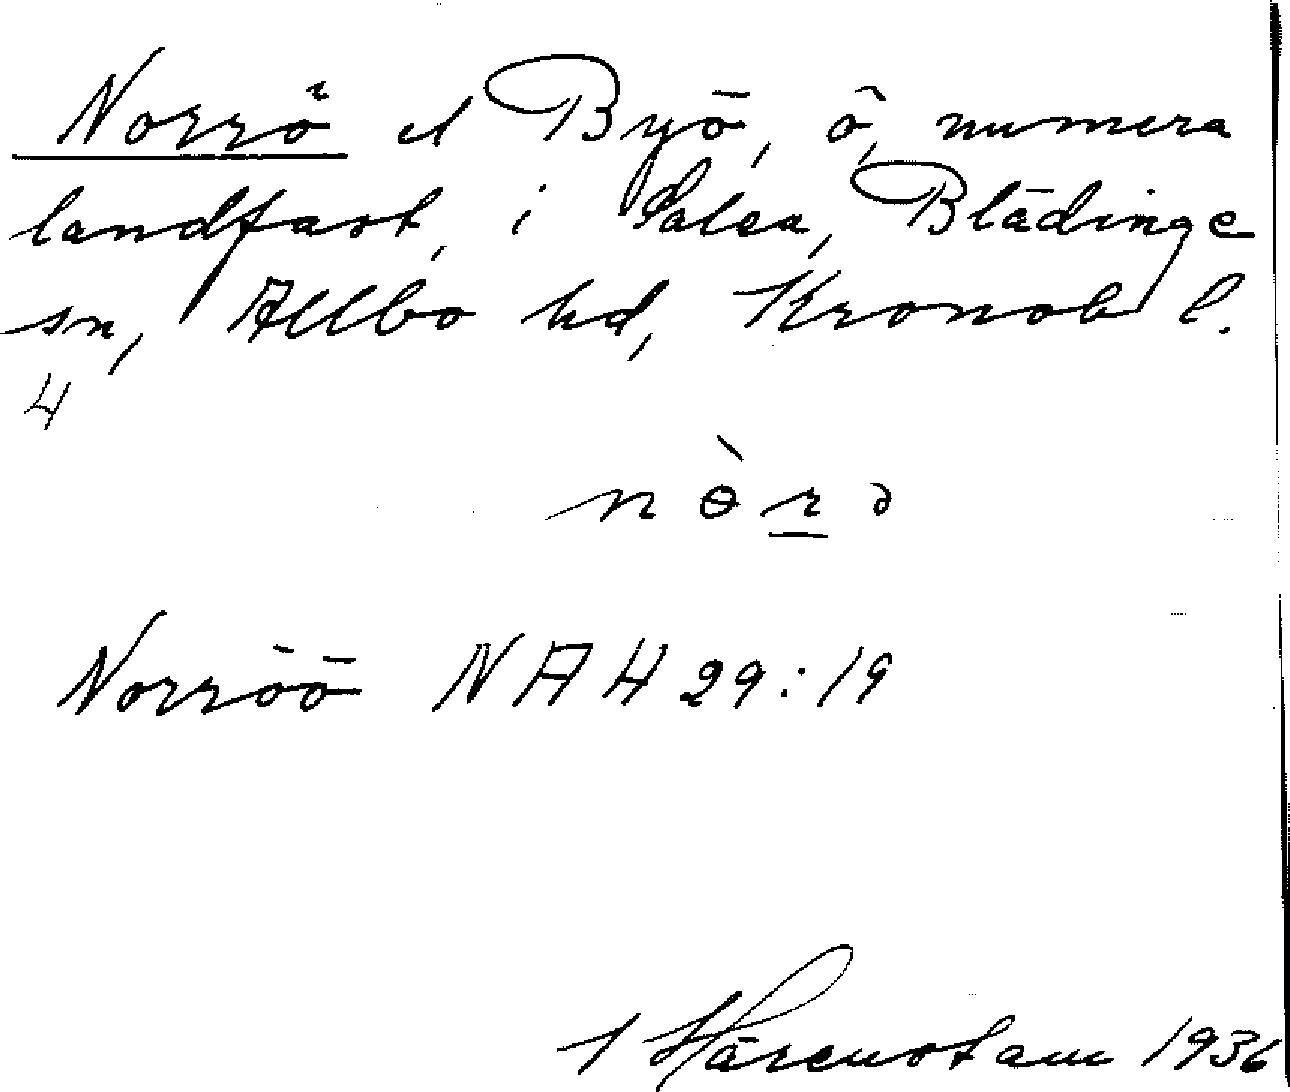 Norrö el Byö, ö, numera
landfast, i Salen, Blädinge
sn, Allbo hd, Kronob l.
4
nòrə
Norröö NAH 29:19
1936